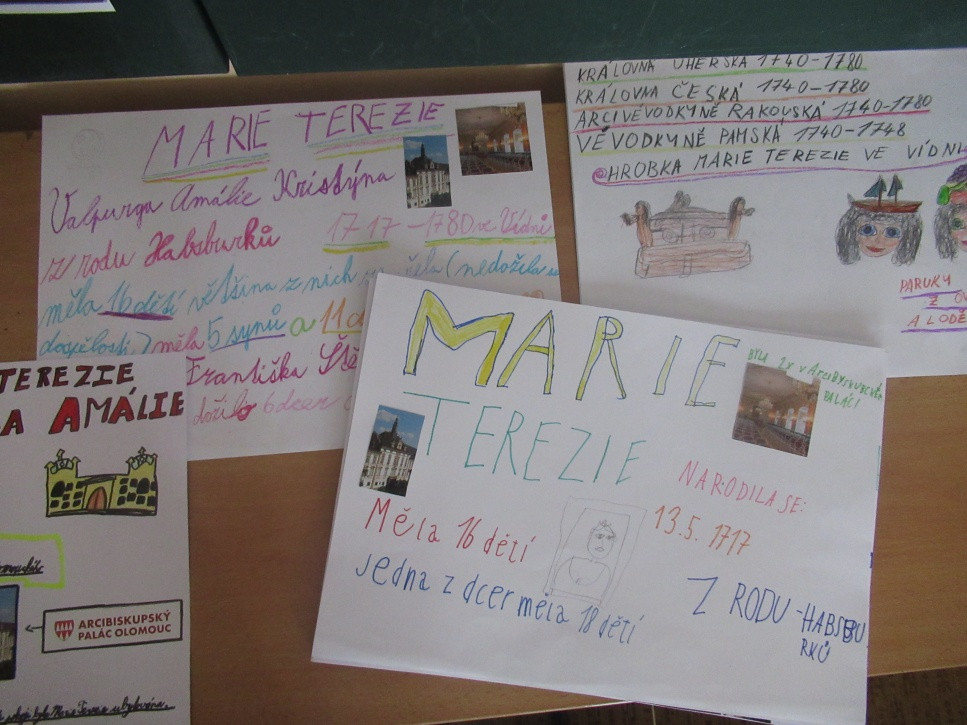 MARIE TEREZIE
Valpurga Amálie Kristýna
z rodu Habsburků 1717 - 1780 ve Vídni
měla 16 dětí většina z nich (nedožila se
dospělosti) měla 5 synů a 11
Františka Ště
dožilo 6 dcer
KRÁLOVNA UHERSKÁ 1740-1780
KRÁLOVNA ČESKÁ 1740-1780
ARCIVÉVODKYNĚ RAKOUSKÁ 1740-1780
VÉVODKYNĚ PAMSKÁ 1740-1748
HROBKA MARIE TEREZIE VE VÍDNI
PARUKY
Z
A LODĚ
TEREZIE
A AMÁLIE
ARCIBISKUPSKÝ
PALÁC OLOMOUC
byla Marie Terezie ubytována.
MARIE
TEREZIE
BYLA
2x v ArcibyskupskéM
PALÁCI
NARODILA SE:
13.5. 1717
Měla 16 dětí
jedna z dcer měla 18 dětí
Z RODU - HABSBU
RKŮ